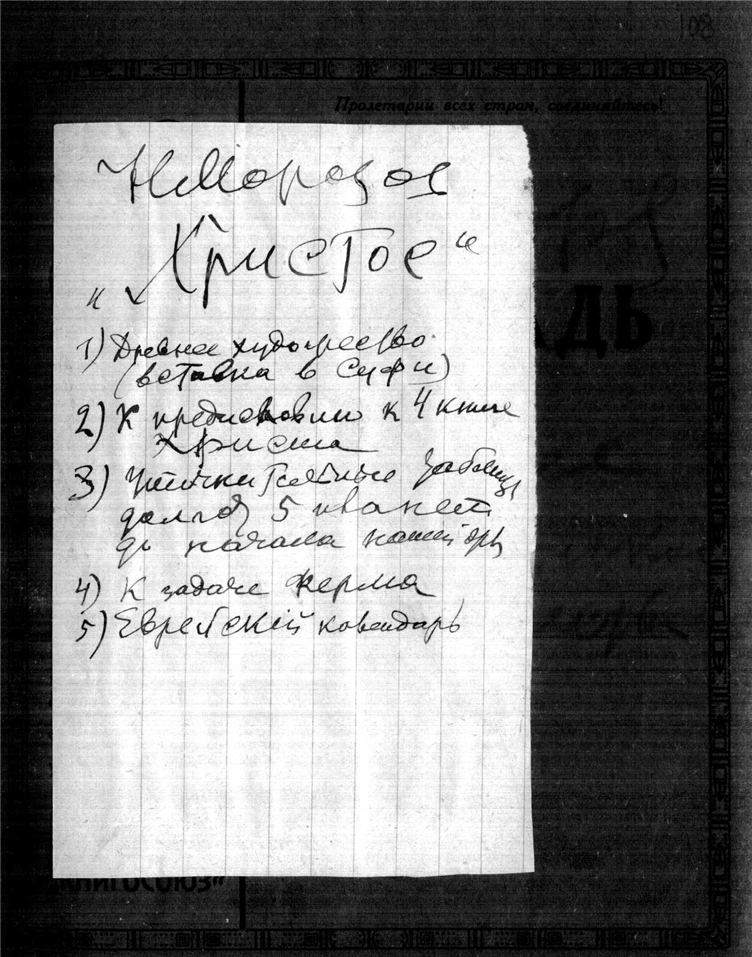 108
Пролетарии всех стран, соединяйтесь!
Н Морозов
„Христос“
1) Древнее художество
(вставка в Суфи)
2) К предисловию к 4 книге
Христа
3) таблицы
долгот 5 планет
до начала нашей эры
4) К задаче Ферма
5) Еврейский календарь
АДЬ
КНИГОСОЮЗ"